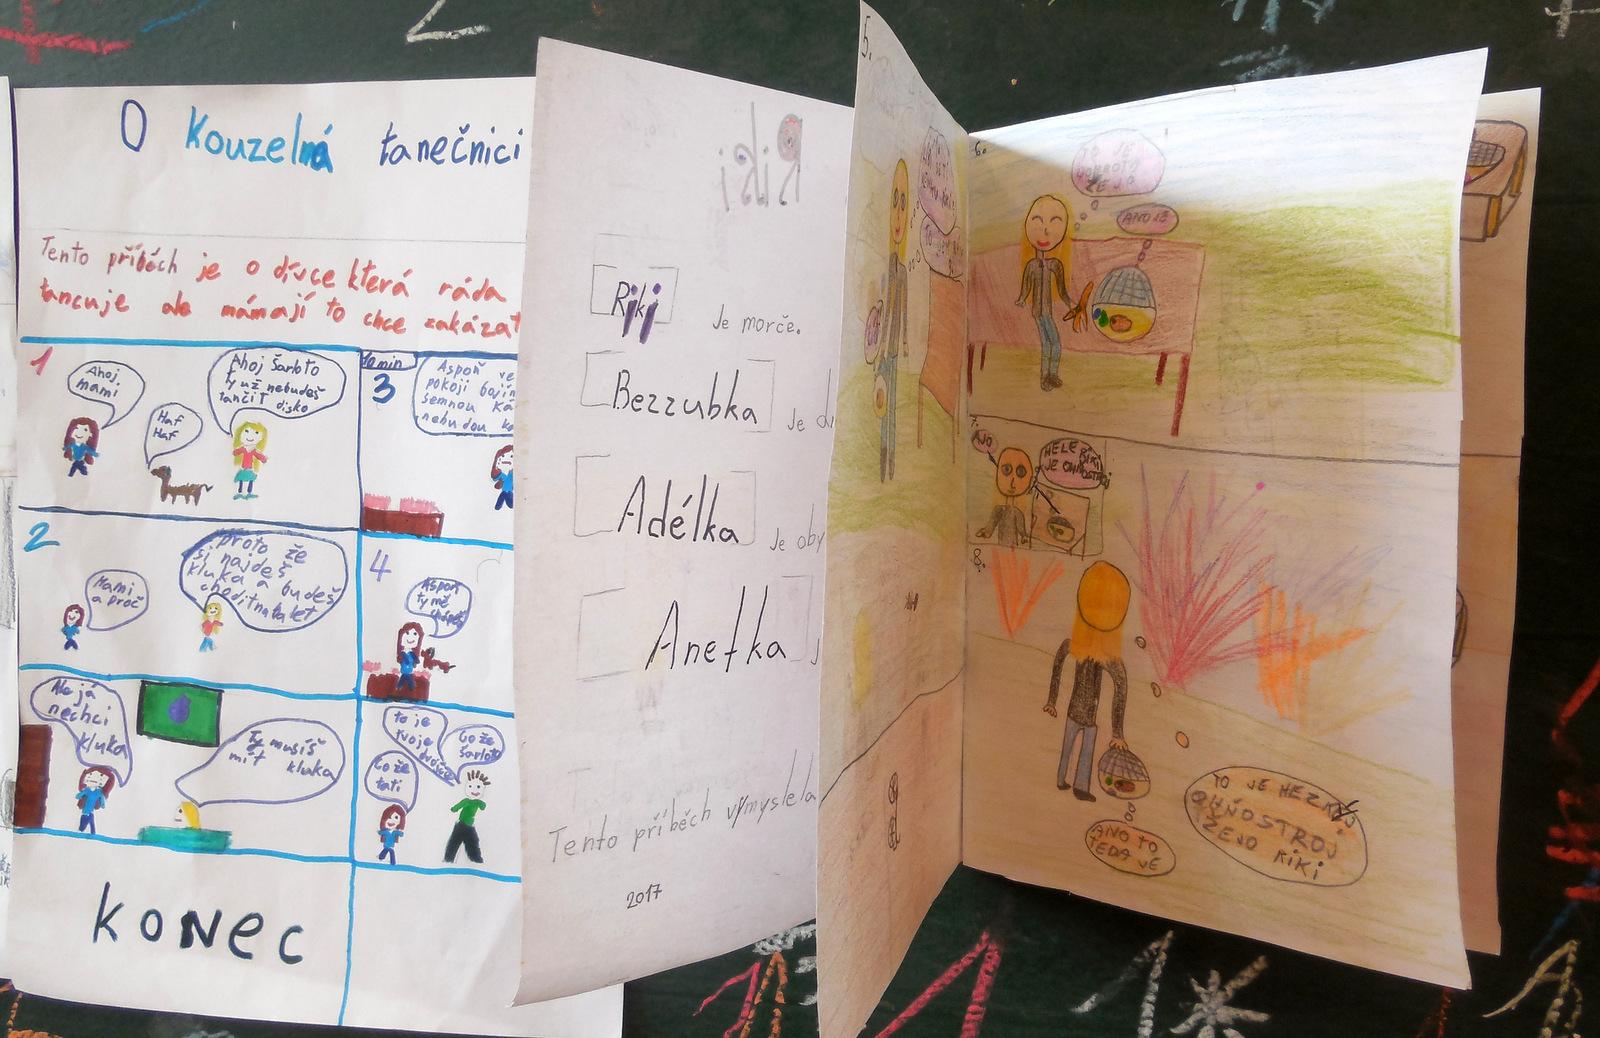 O kouzelná tanečnici
Tento příběch je o dívce která ráda
tancuje ale máma jí to chce zakázat
1
Ahoj
mami
Haf
Haf
Ahoj Šarloto
ty už nebudeš
tančit disko
2
Mami
a proč
proto že
si najdeš
kluka a budeš
chodit na balet
Ale já
nechci
kluka
Ty musíš
mít kluka
10 min
3
Aspoň
pokoji
semnou
nebudou
4
Aspoň
ty mě
to je
tvoje
Co že
Šarloto
Co že
tati
KONEC
Riki
Riki je morče.
Bezzubka je
Adélka je oby
Anetka
Tento příběch vymyslela
2017
5.
6.
TO JE
DOBROTA
ŽEJO
ANO JE
7.
AJO
HELE RIKI
JE OHŇOSTROJ
8.
TO JE HEZKEJ
OHŇOSTROJ
ŽEJO RIKI
ANO TO
TEDA JE